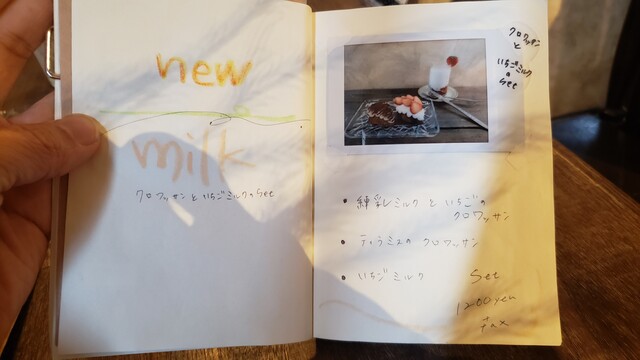 new
milk
クロワッサンといちごミルクのSet
クロワッサン
と
いちごミルク
の
Set
• 練乳ミルクといちごの
クロワッサン
• ティラミスのクロワッサン
• いちごミルク Set
1200yen
+tax